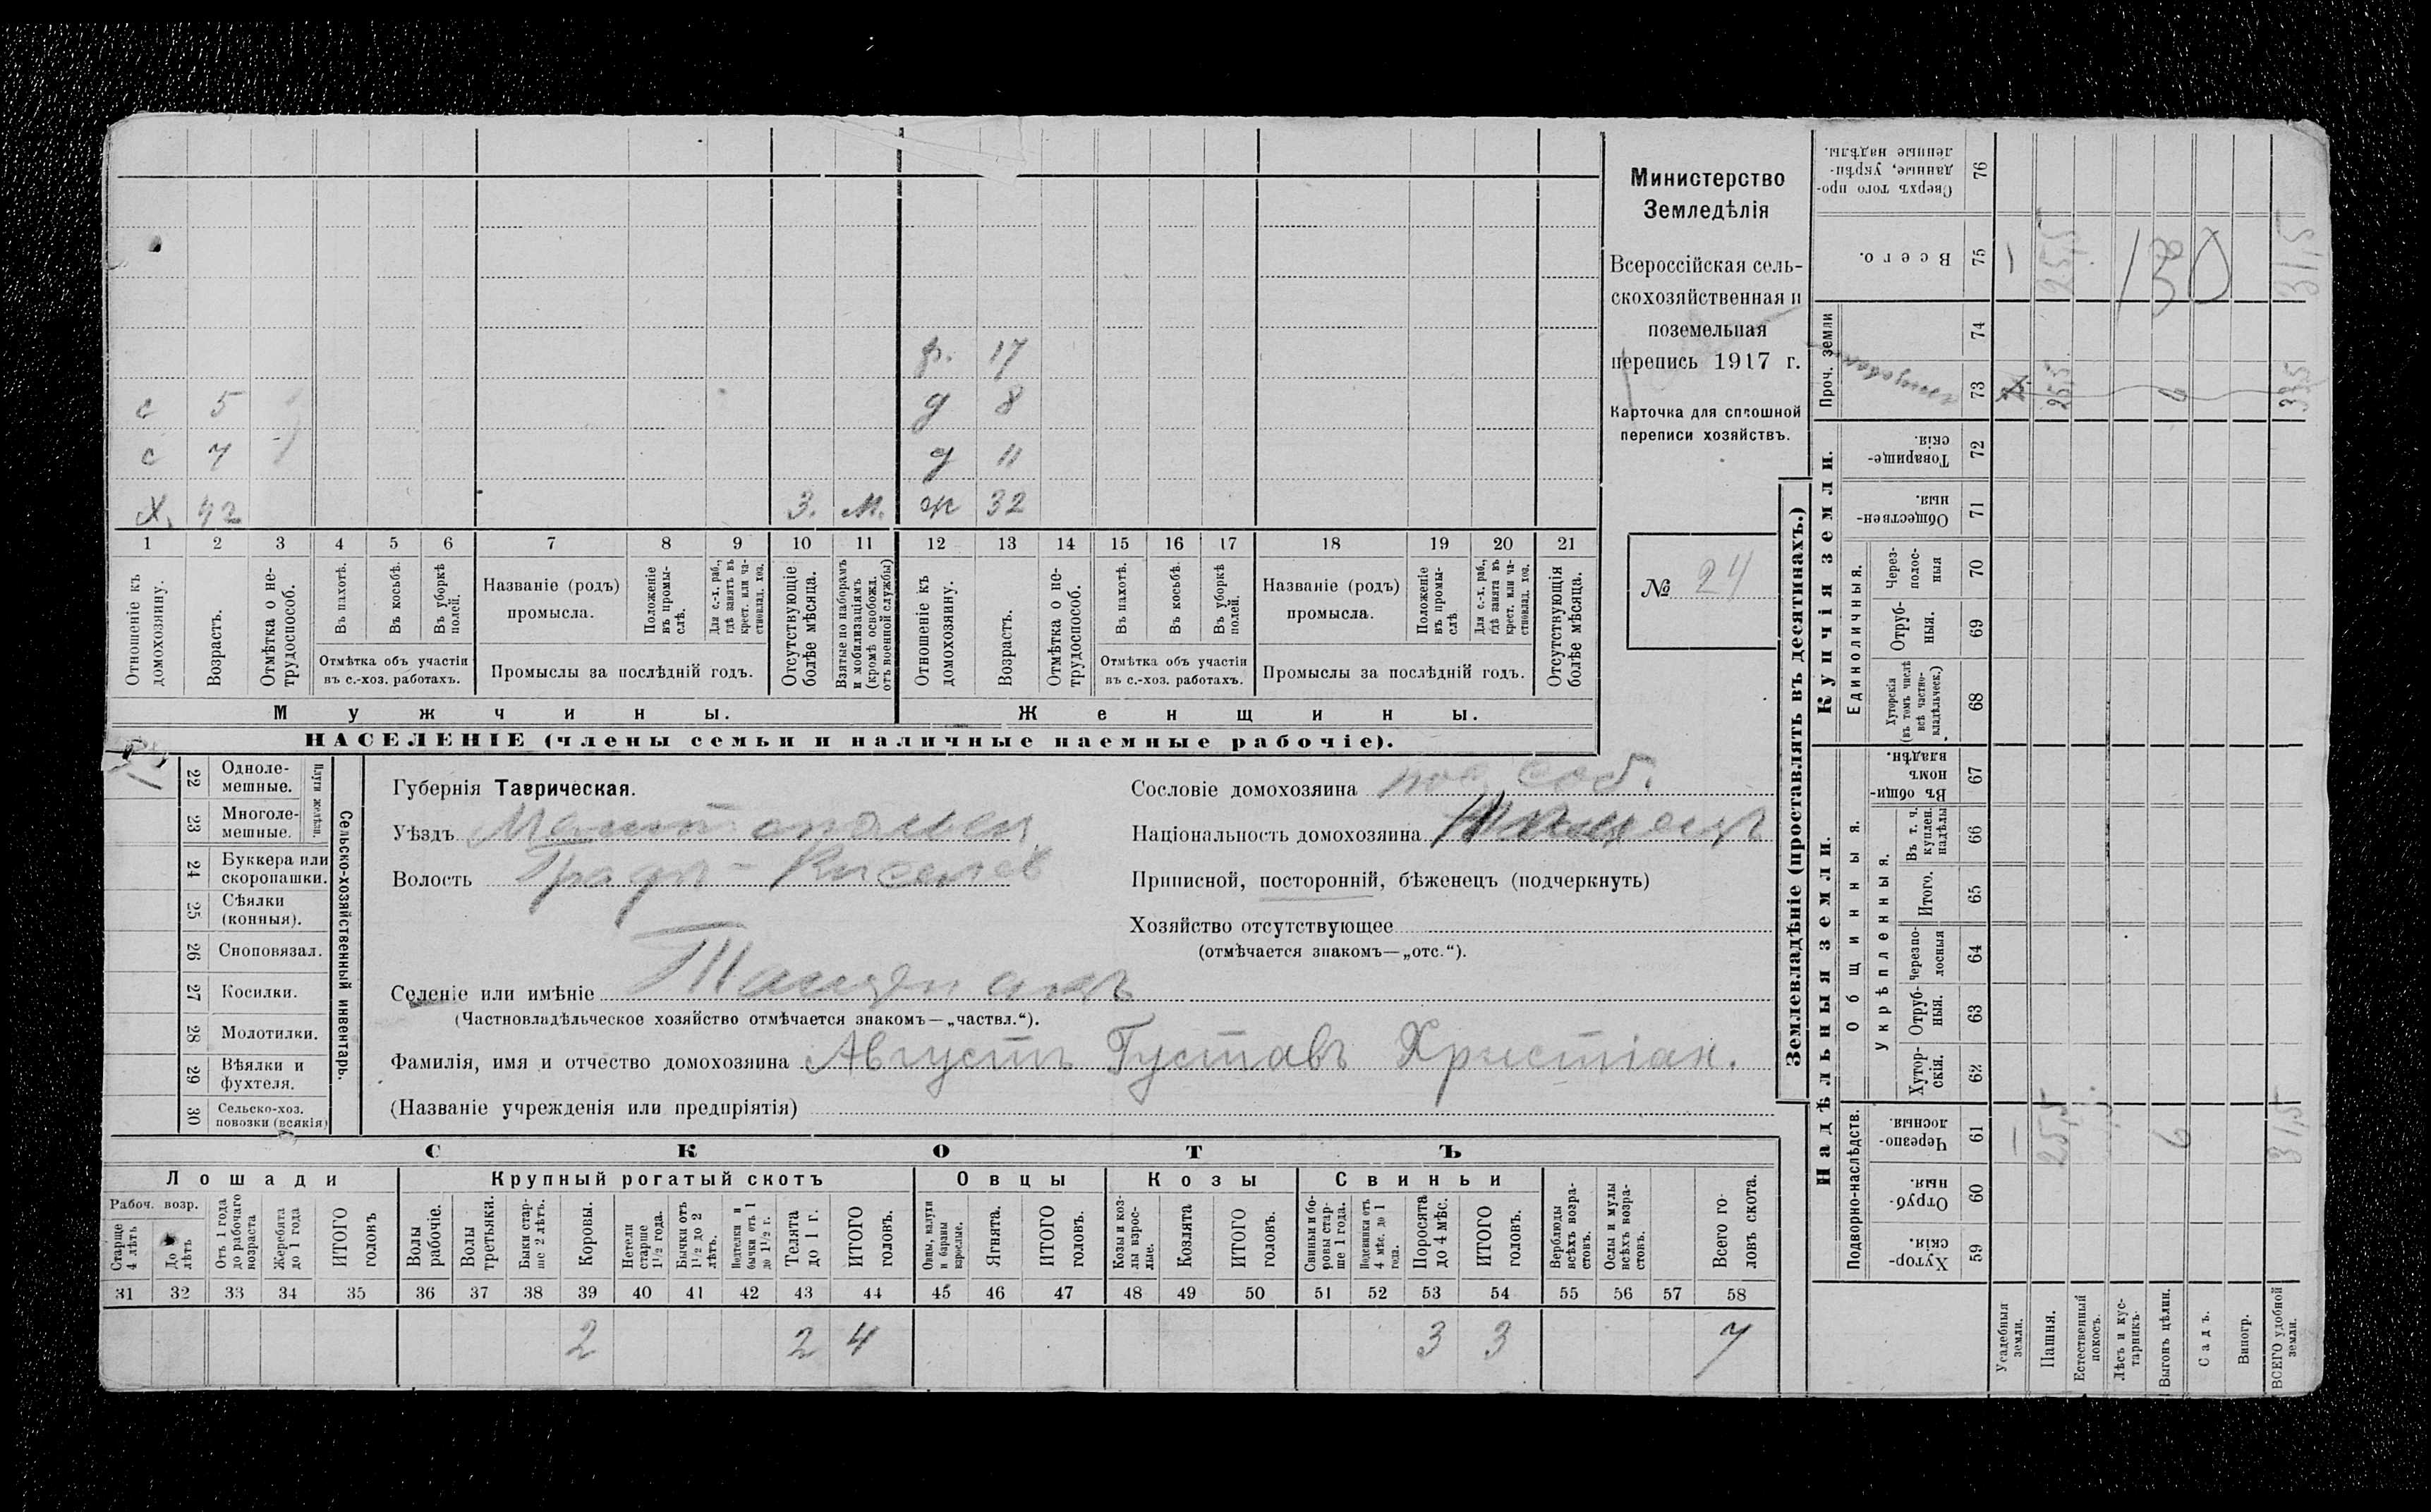 Министерство
Земледѣлія
Всероссійская сель-
скохозяйственная и
поземельная
перепись 1917 г.
Карточка для сплошной
переписи хозяйствъ.
№ 24
р. 17
с 5 д 8
с 7 д 11
Х. 42 3. м. ж 32
1 2 3 4 5 6 7 8 9 10 11 12 13 14 15 16 17 18 19 20 21
Отношеніе къ домохозяину.
Возрастъ.
Отмѣтка о не-трудоспособ.
Въ пахотѣ.
Въ косьбѣ.
Въ уборкѣ полей.
Отмѣтка объ участіи
въ с.-хоз. работахъ.
Названіе (родъ)
промысла.
Положеніе въ промы-слѣ.
Для с.-х. раб., гдѣ занятъ въ крест. или ча-стновлад. хоз.
Промыслы за послѣдній годъ.
Отсутствующіе болѣе мѣсяца.
Взятые по наборамъ и мобилизаціямъ (кромѣ освобожд. отъ военной службы)
Отношеніе къ домохозяину.
Возрастъ.
Отмѣтка о не-трудоспособ.
Въ пахотѣ.
Въ косьбѣ.
Въ уборкѣ полей.
Отмѣтка объ участіи
въ с.-хоз. работахъ.
Названіе (родъ)
промысла.
Положеніе въ промы-слѣ
Для с.-х. раб., гдѣ занятъ въ крест. или ча-стновлад. хоз.
Промыслы за послѣдній годъ.
Отсутствующія болѣе мѣсяца.
Мужчины. Женщины.
НАСЕЛЕНІЕ (члены семьи и наличные наемные рабочіе).
Сельско-хозяйственный инвентарь.
Плуги желѣзн.
22 Одноле-мешные.
23 Многоле-мешные.
24 Буккера или скоропашки.
25 Сѣялки (конныя).
26 Сноповязал.
27 Косилки.
28 Молотилки.
29 Вѣялки и фухтеля.
30 Сельско-хоз. повозки (всякія)
Губернія Таврическая.
Уѣздъ Мелитопольск
Волость Графъ-Киселев
Селеніе или имѣніе Тащенакъ
(Частновладѣльческое хозяйство отмѣчается знакомъ—„частвл.“).
Фамилія, имя и отчество домохозяина Августъ Густавъ Христіан.
(Названіе учрежденія или предпріятія)
Сословіе домохозяина пос. соб.
Національность домохозяина Нѣмецъ
Приписной, посторонній, бѣженецъ (подчеркнуть)
Хозяйство отсутствующее
(отмѣчается знакомъ—„отс.“).
СКОТЪ
Лошади Крупный рогатый скотъ Овцы Козы Свиньи
Рабоч. возр.
Старше 4 лѣтъ
До 4 лѣтъ
Отъ 1 года до рабочаго возраста
Жеребята до 1 года
ИТОГО головъ
Волы рабочіе.
Волы третьяки.
Быки стар-ше 2 лѣтъ.
Коровы.
Нетели старше 1½ года.
Бычки отъ 1½ до 2 лѣтъ.
Подтелки и бычки отъ 1 до 1½ г.
Телята до 1 г.
ИТОГО головъ.
Овцы, валухи и бараны взрослые.
Ягнята.
ИТОГО головъ.
Козы и коз-лы взрос-лые.
Козлята
ИТОГО головъ.
Свиньи и бо-ровы стар-ше 1 года.
Подсвинки отъ 4 мѣс. до 1 года.
Поросята до 4 мѣс.
ИТОГО головъ.
Верблюды всѣхъ возра-стовъ.
Ослы и мулы всѣхъ возра-стовъ.
Всего го-ловъ скота.
31 32 33 34 35 36 37 38 39 40 41 42 43 44 45 46 47 48 49 50 51 52 53 54 55 56 57 58
2 2 4 3 3 7
Землевладѣніе (проставлять въ десятинахъ.)
Надѣльныя земли.
Купчія земли.
Проч. земли
Подворно-наслѣдств.
Общинныя.
Укрѣпленныя.
Единоличныя.
Хутор-скія. 59
Отруб-ныя. 60
Черезпо-лосныя. 61
Хутор-скія. 62
Отруб-ныя. 63
Черезпо-лосныя 64
Итого. 65
Въ т. ч. куплен. надѣлы 66
Въ общин-номъ владѣн. 67
Хуторскія (въ томъ числѣ всѣ частно-владѣльческ.) 68
Отруб-ныя. 69
Через-полос-ныя 70
Обществен-ныя. 71
Товарище-скія. 72
73
74
Всего. 75
Сверхъ того про-данные, укрѣп-ленные надѣлы. 76
Усадебныя земли.
Пашня.
Естественный покосъ.
Лѣсъ и кус-тарникъ.
Выгонъ цѣлин.
Садъ.
Виногр.
ВСЕГО удобной земли.
1 25,5 6 31,5
25,5 6 33,5
1 25,5 31,5